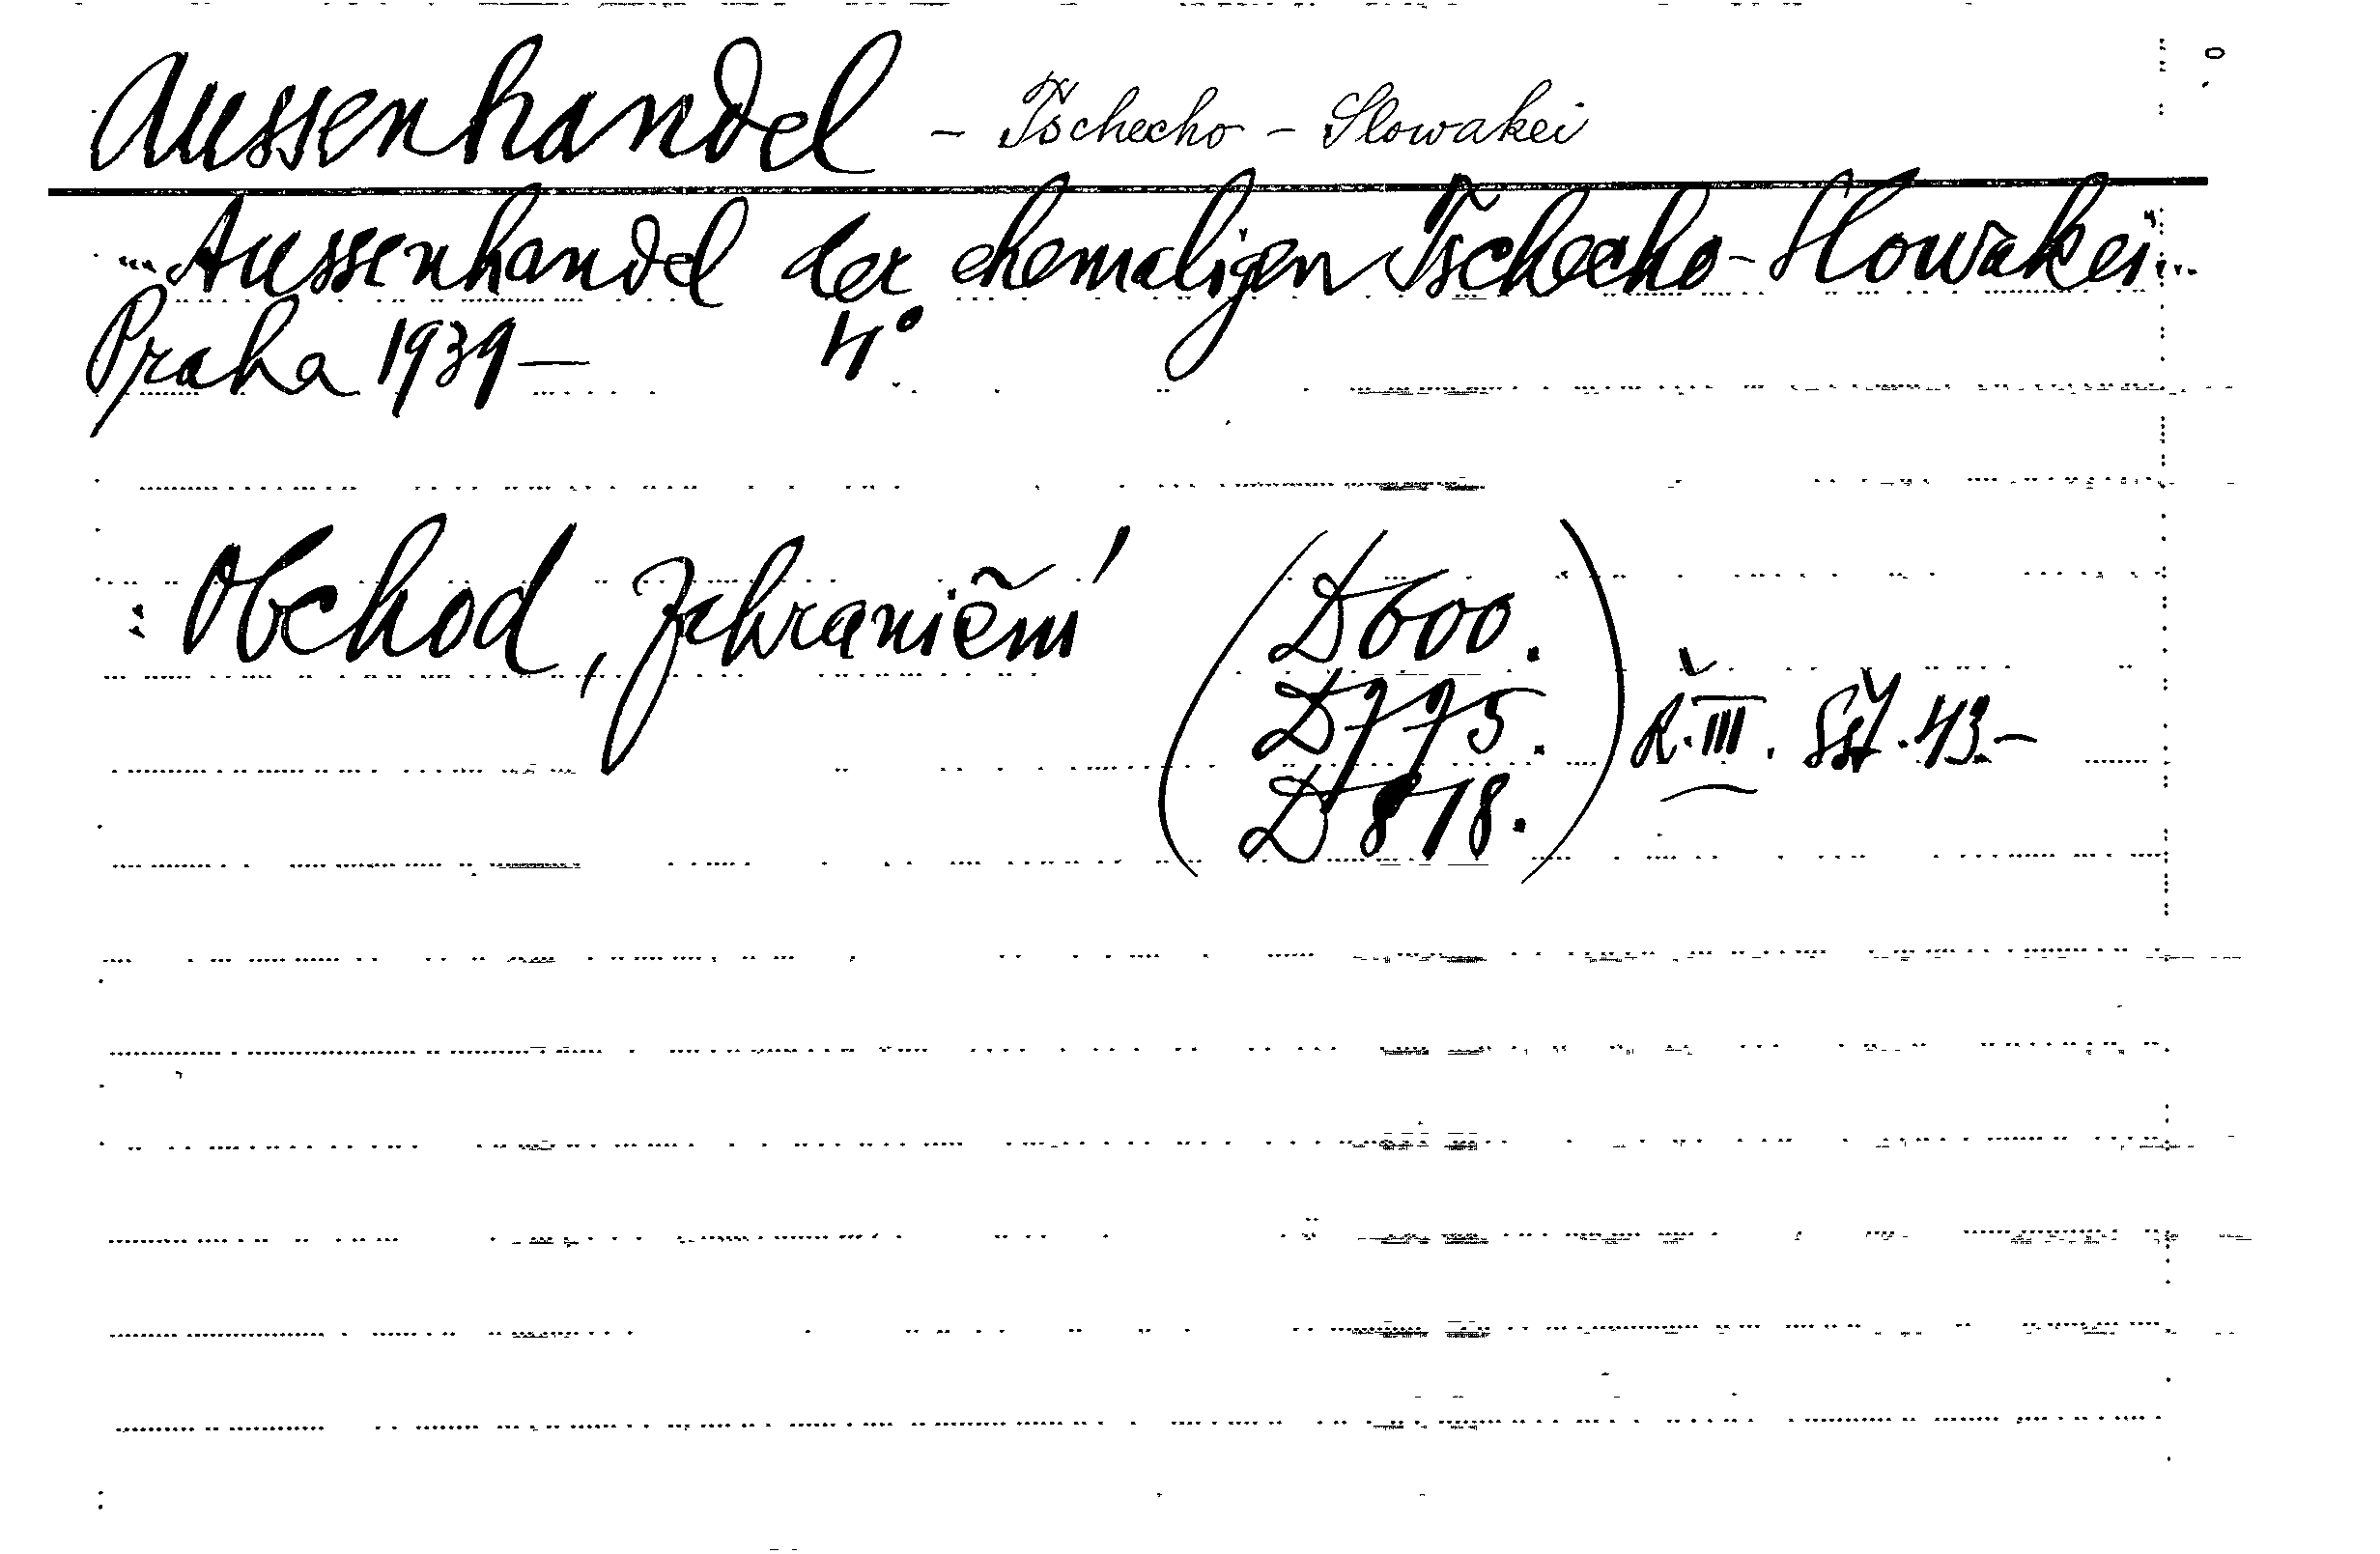 Aussenhandel - Tschecho - Slowakei
Aussenhandel der ehemaligen Tschecho-Slowakei.
Praha 1939— 4°
Obchod, zahraniční (D600.
D775.
D818.) Ř.III. 43.-